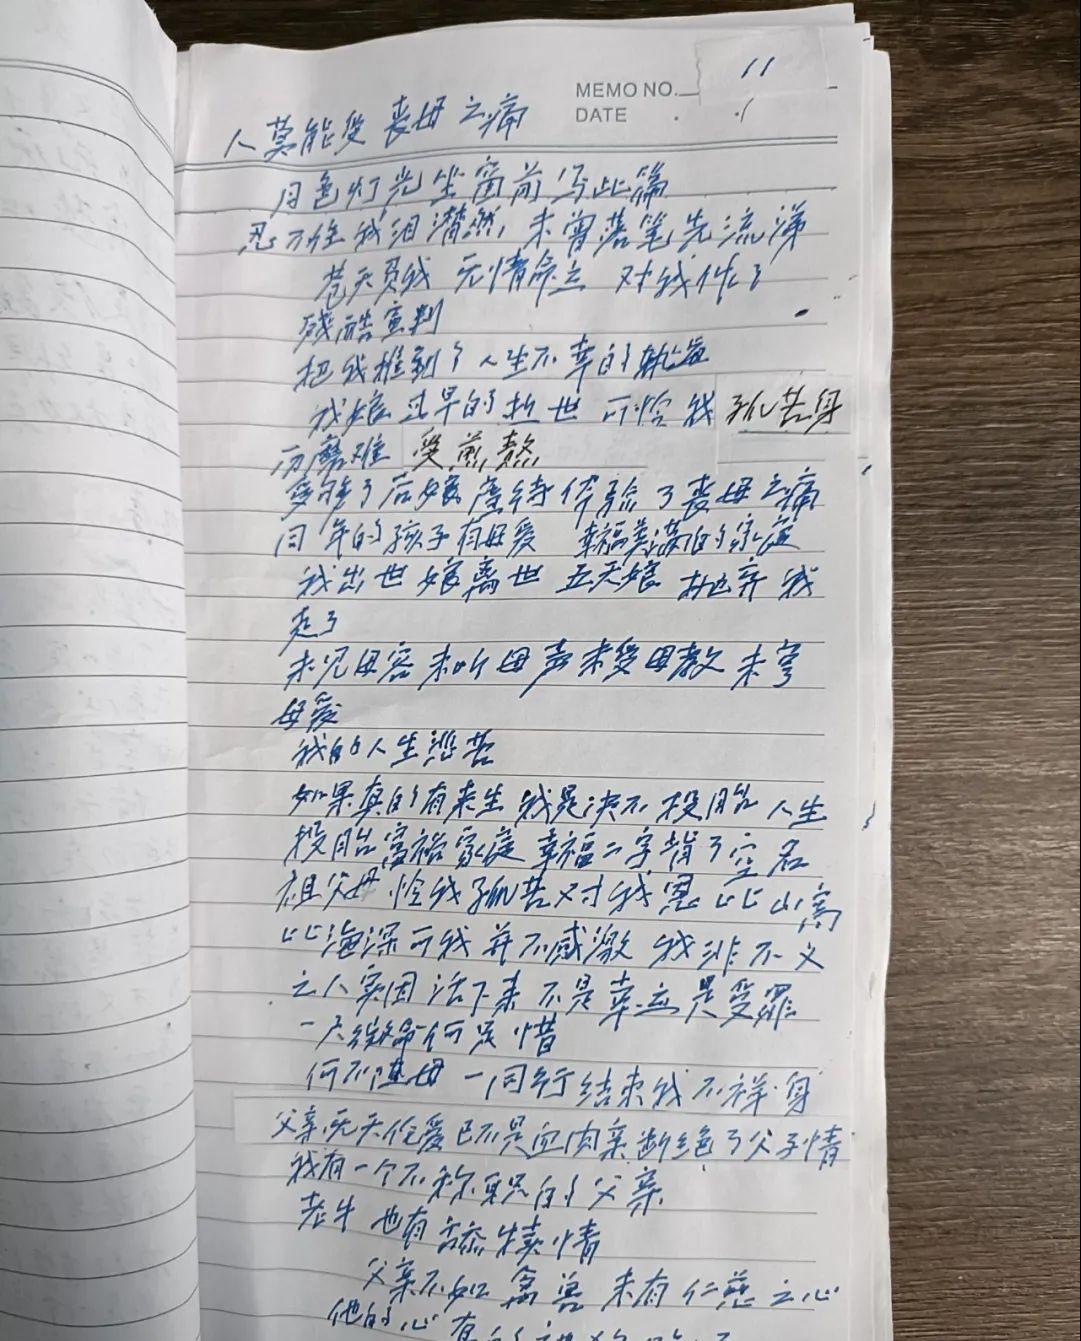 11
MEMO NO.
DATE . . /
人莫能受丧母之痛
月色灯光坐窗前写此篇
忍不住我泪潸然,未曾落笔先流涕
苍天负我 无情命运 对我作了
残酷宣判
把我推到了人生不幸的轨道
我娘过早的逝世 可怜我 孤苦身
历磨难 受煎熬
受够了后娘虐待体验了丧母之痛
同年的孩子有母爱 幸福美满的家庭
我出世娘离世 五天娘 抛弃我
走了
未见母容未听母声未受母教未享
母爱
我的人生悲苦
如果真的有来生我是决不投胎人生
投胎富裕家庭幸福二字背了空名
祖父母怜我孤苦对我恩比山高
比海深可我并不感激 我非不义
之人实因活下来不是幸运是受罪
一条微命何足惜
何不随母一同行结束我不祥身
父亲无关住爱已不是血肉亲断绝了父子情
我有一个不称职的父亲
老牛也有舔犊情
父亲不如禽兽未有仁慈之心
他的心